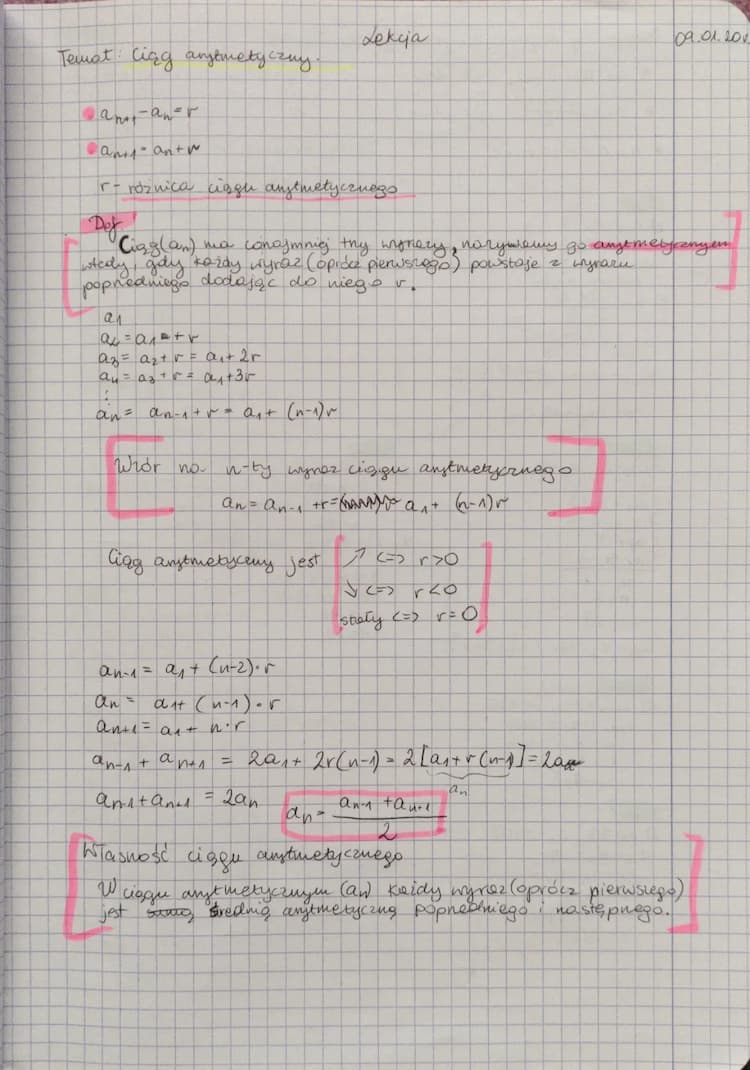 Lekcja 09.01.20
Temat: Ciąg arytmetyczny.
a_{n+1} - a_n = r
a_{n+1} = a_n + r
r - różnica ciągu arytmetycznego
Def
Ciąg (a_n) ma conajmniej trzy wyrazy, nazywamy go arytmetycznym
wtedy, gdy każdy wyraz (oprócz pierwszego) powstaje z wyrazu
poprzedniego dodając do niego r.
a_1
a_2 = a_1 + r
a_3 = a_2 + r = a_1 + 2r
a_4 = a_3 + r = a_1 + 3r
⋮
a_n = a_{n-1} + r = a_1 + (n-1)r
Wzór na n-ty wyraz ciągu arytmetycznego
a_n = a_{n-1} + r = a_1 + (n-1)r
Ciąg arytmetyczny jest ↗ <=> r>0
↘ <=> r<0
stały <=> r=0
a_{n-1} = a_1 + (n-2)·r
a_n = a_1 + (n-1)·r
a_{n+1} = a_1 + n·r
a_{n-1} + a_{n+1} = 2a_1 + 2r(n-1) = 2[a_1 + r(n-1)] = 2a_n
a_n
a_{n-1} + a_{n+1} = 2a_n a_n = \frac{a_{n-1} + a_{n+1}}{2}
Własność ciągu arytmetycznego
W ciągu arytmetycznym (a_n) każdy wyraz (oprócz pierwszego)
jest średnią arytmetyczną poprzedniego i następnego.